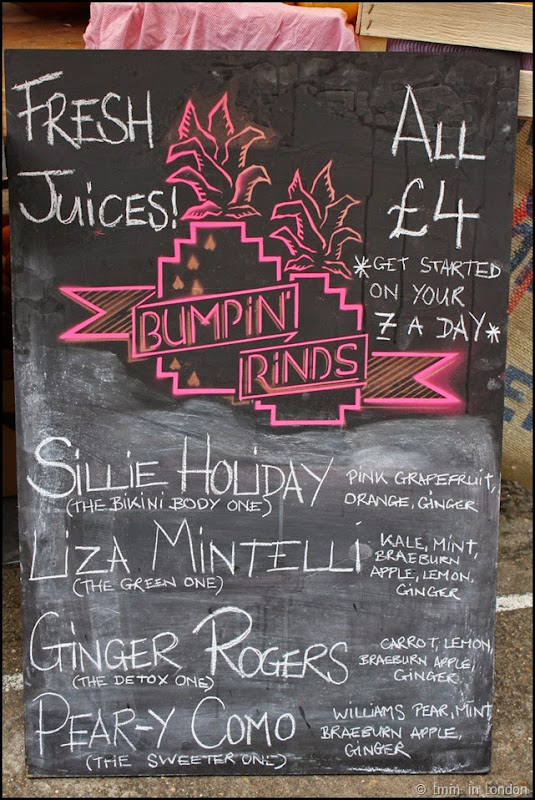 FRESH
JUICES!
ALL
£4
*GET STARTED
ON YOUR
7 A DAY*
BUMPIN'
RINDS
SILLIE HOLIDAY
(THE BIKINI BODY ONE)
PINK GRAPEFRUIT,
ORANGE, GINGER
LIZA MINTELLI
(THE GREEN ONE)
KALE, MINT,
BRAEBURN
APPLE, LEMON,
GINGER
GINGER ROGERS
(THE DETOX ONE)
CARROT, LEMON,
BRAEBURN APPLE,
GINGER
PEAR-Y COMO
(THE SWEETER ONE)
WILLIAMS PEAR, MINT
BRAEBURN APPLE,
GINGER
© tmm in london